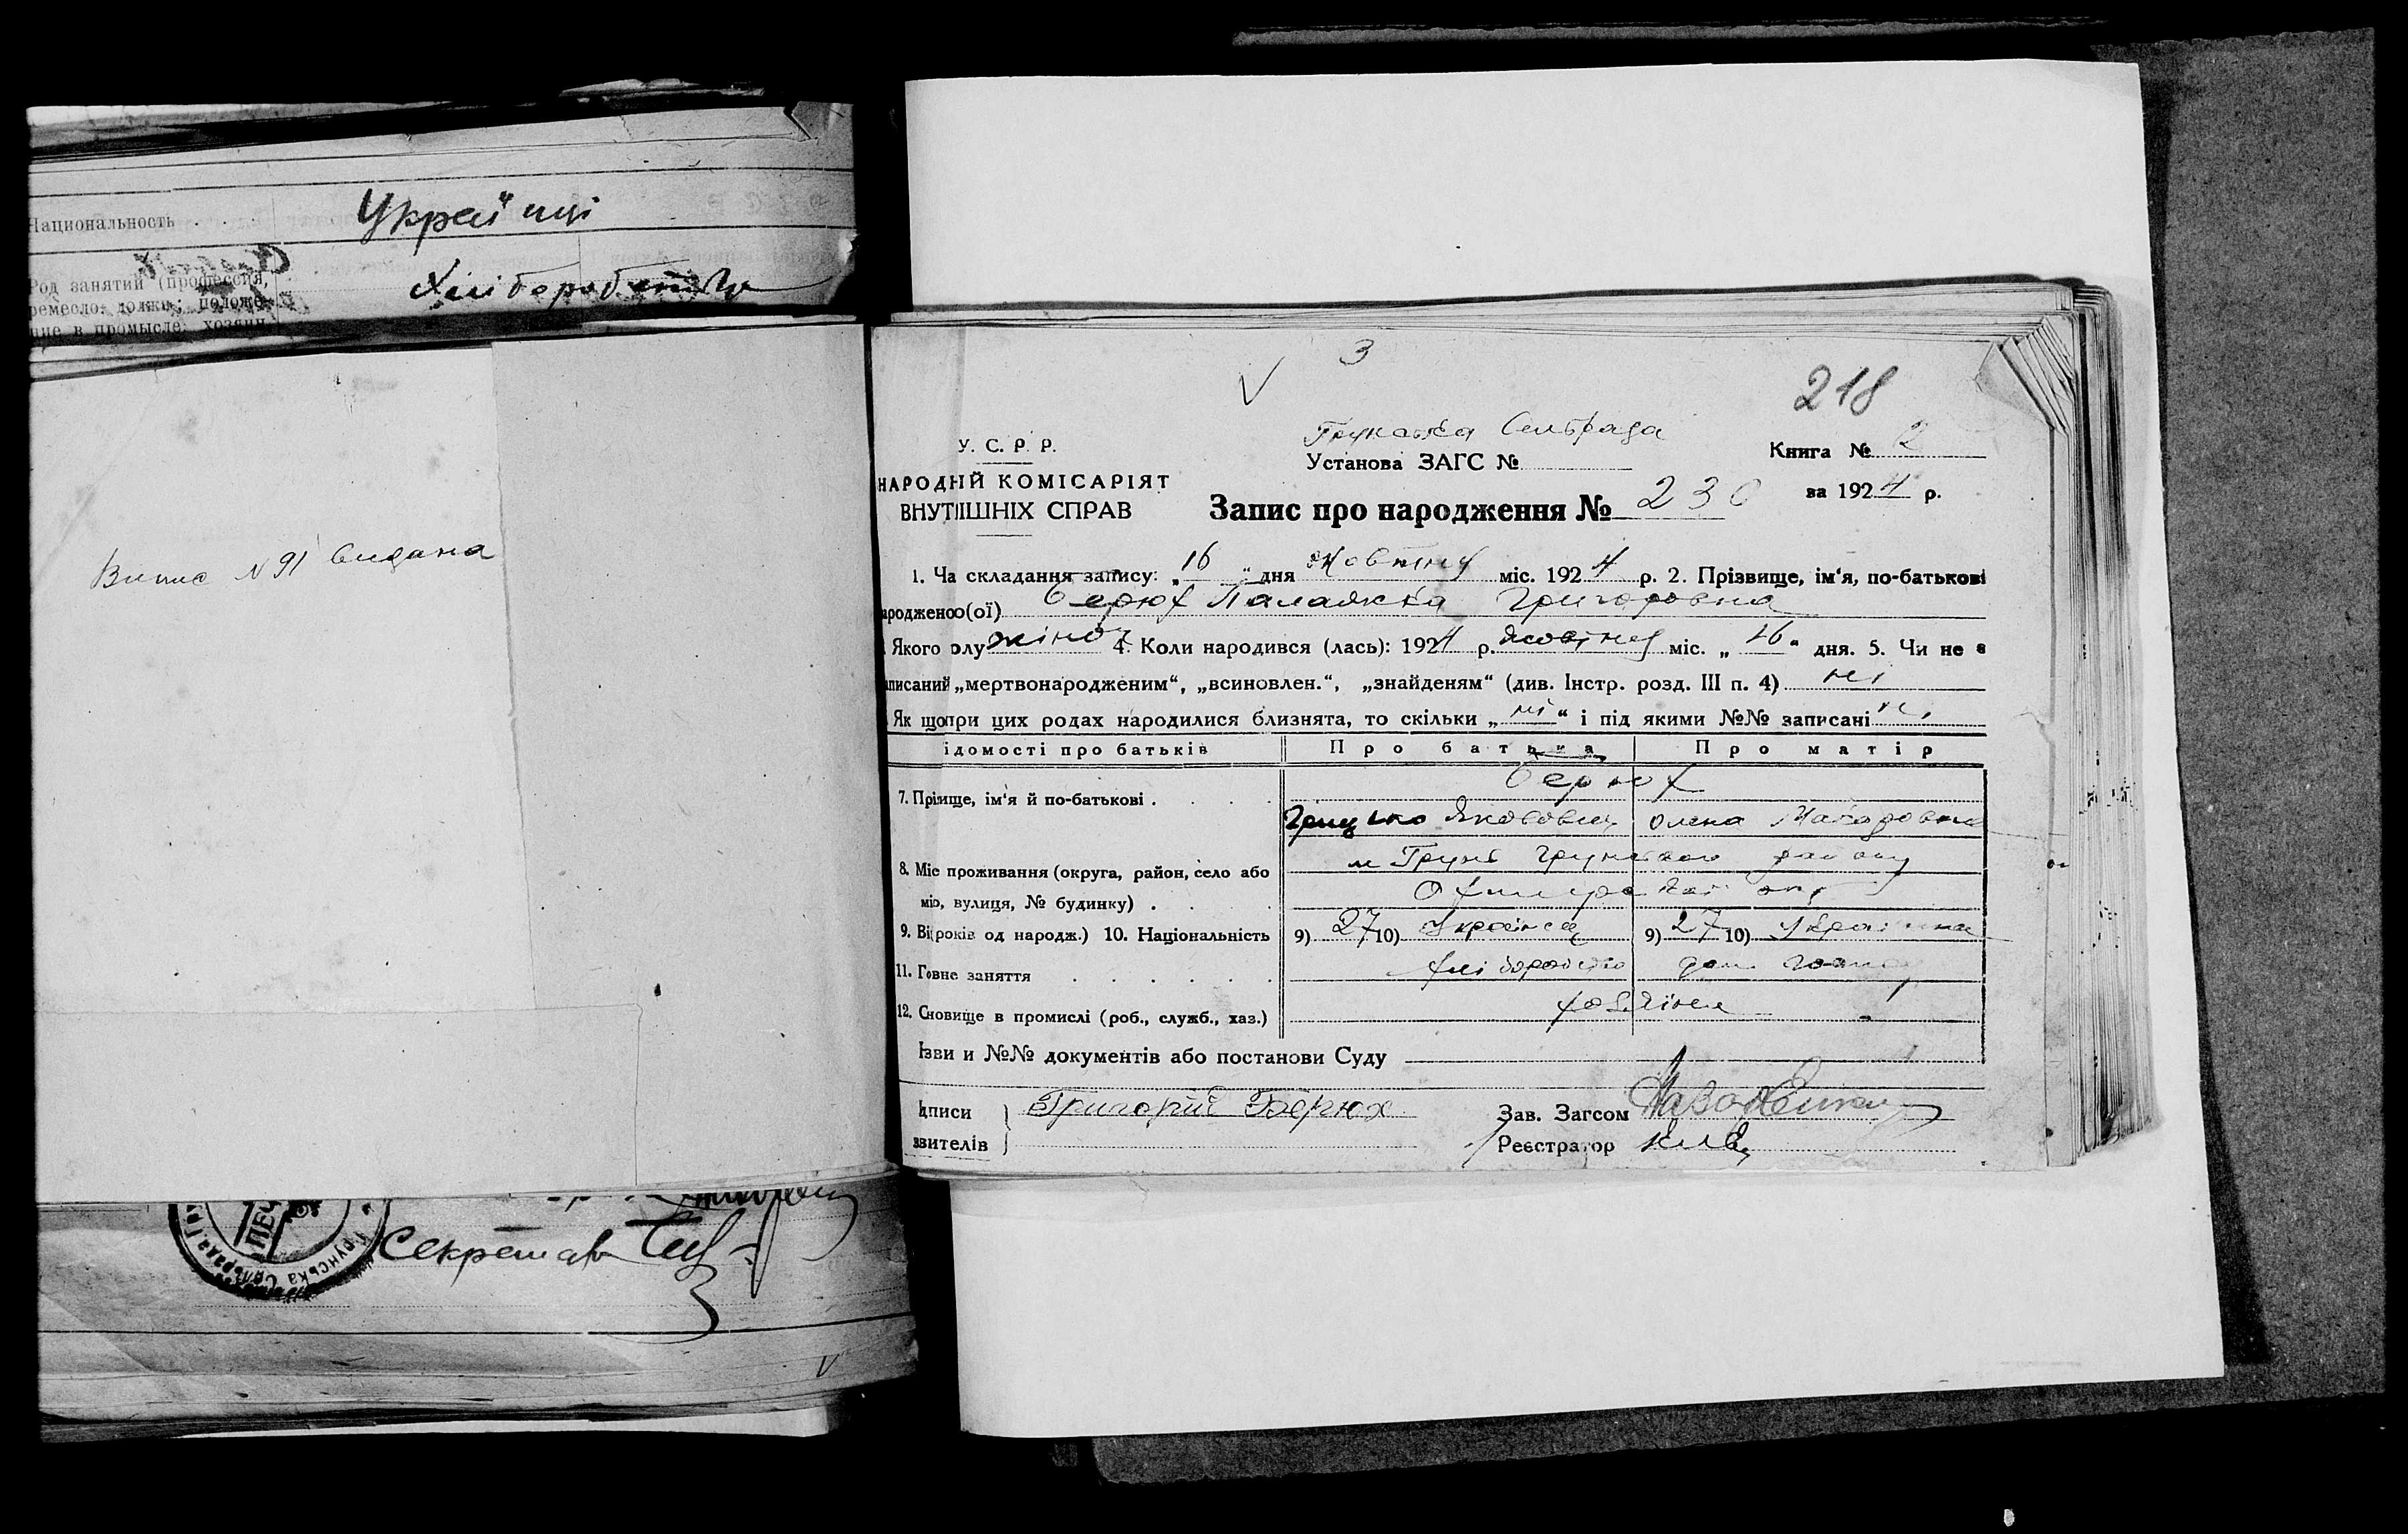 Национальность . . .
Українці
Род занятий (профессия,
ремесло, должн.; положе-
ние в промысле, хозяин
Хліборобство
Випис N 91 видана
Секретар
Грунська Сільрада
3
218
Грунська Сільрада
У. С. Р. Р.
Установа ЗАГС №
Книга № 2
НАРОДНІЙ КОМІСАРІЯТ
ВНУТІШНІХ СПРАВ
Запис про народження № 230
за 1924 р.
1. Ча складання запису: „16“ дня Жовтня міс. 1924 р. 2. Прізвище, ім‘я, по-батькові
ародженоо(ої) Берюх Палажка Григоровна
Якого олу жіноч 4. Коли народився (лась): 1924 р. жовтня міс. „16“ дня. 5. Чи не є
писаний „мертвонародженим“, „всиновлен.“, „знайденям“ (див. Інстр. розд. III п. 4) ні
Як щопри цих родах народилися близнята, то скільки „ні“ і під якими №№ записані ні
ідомості про батьків
Про батька
Про матір
7. Прівище, ім‘я й по-батькові .
Берюх
Грицько Якович
Олена Макаровна
8. Міс проживання (округа, район, село або
міо, вулиця, № будинку) .
м Грунь Грунського району
9. Ві(років од народж.) 10. Національність
9) 27 10) Українец
9) 27 10) Українка
11. Говне заняття
хліборобство
дом
12. Сновище в промислі (роб., служб., хаз.)
хозяіни
Ізви и №№ документів або постанови Суду
дписи
Григорій Берюх
Зав. Загсом
явителів
Реєстратор